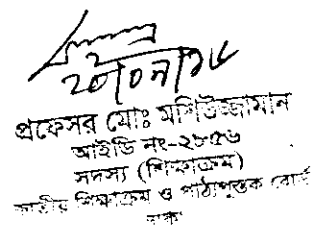 ২০/০৭/১৮
প্রফেসর মোঃ মশিউজ্জামান
আইডি নং-২৮৫৬
সদস্য (শিক্ষাক্রম)
জাতীয় শিক্ষাক্রম ও পাঠ্যপুস্তক বোর্ড
ঢাকা